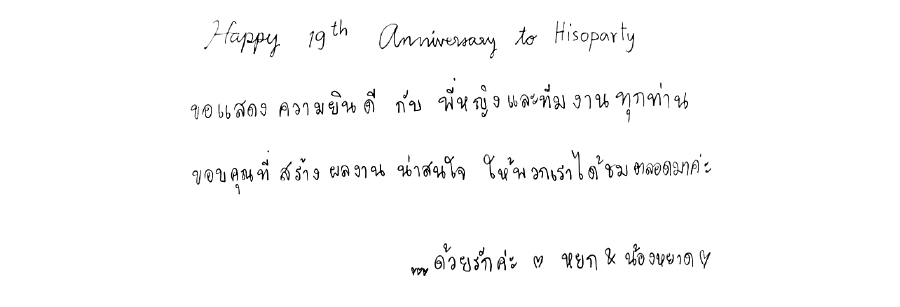 Happy 19th Anniversary to Hisoparty
ขอแสดงความยินดี กับ พี่หญิงและทีมงานทุกท่าน
ขอบคุณที่สร้างผลงานน่าสนใจ ให้พวกเราได้ชมตลอดมาค่ะ
...ด้วยรักค่ะ ♡ หยก & น้องหยาด ♡